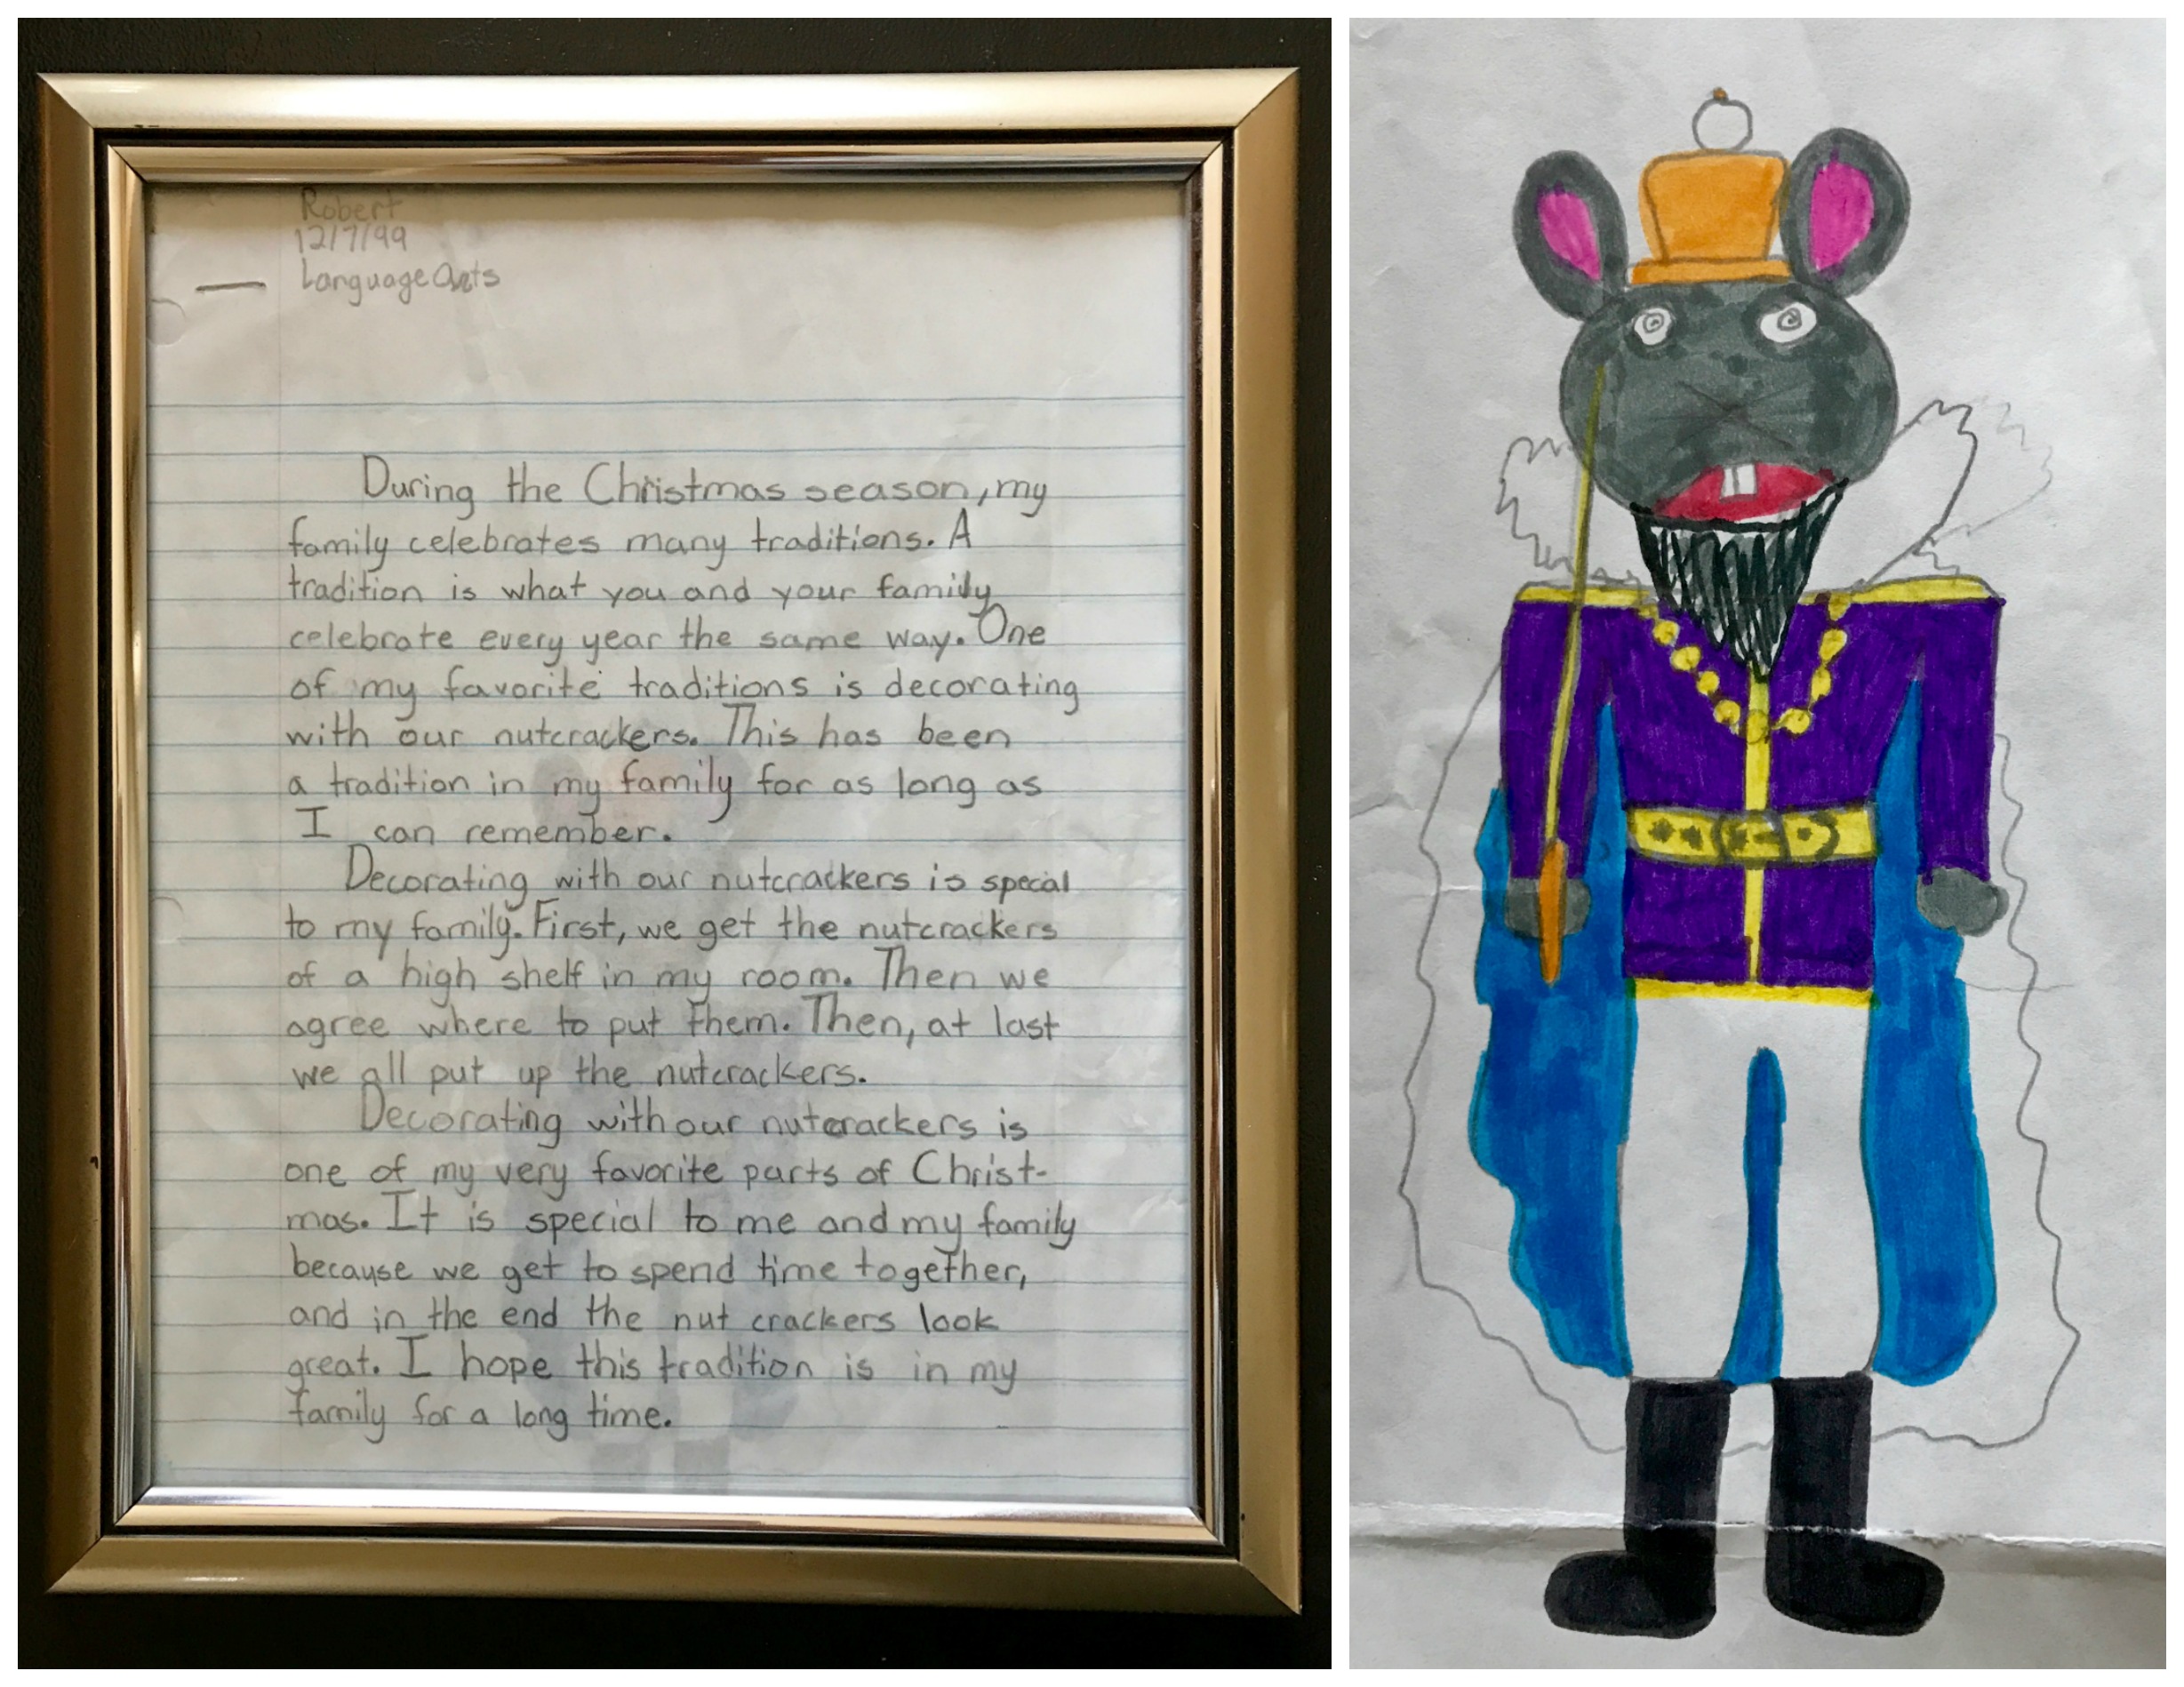 Robert
12/7/99
Language Arts
During the Christmas season, my
family celebrates many traditions. A
tradition is what you and your family
celebrate every year the same way. One
of my favorite traditions is decorating
with our nutcrackers. This has been
a tradition in my family for as long as
I can remember.
Decorating with our nutcrackers is special
to my family. First, we get the nutcrackers
of a high shelf in my room. Then we
agree where to put them. Then, at last
we all put up the nutcrackers.
Decorating with our nutcrackers is
one of my very favorite parts of Christ-
mas. It is special to me and my family
because we get to spend time together,
and in the end the nut crackers look
great. I hope this tradition is in my
family for a long time.